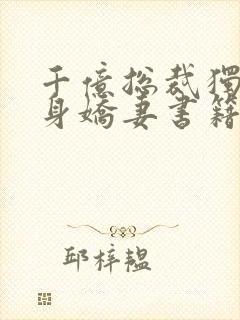 千億總裁獨
身嬌妻書籍
邱梓韞